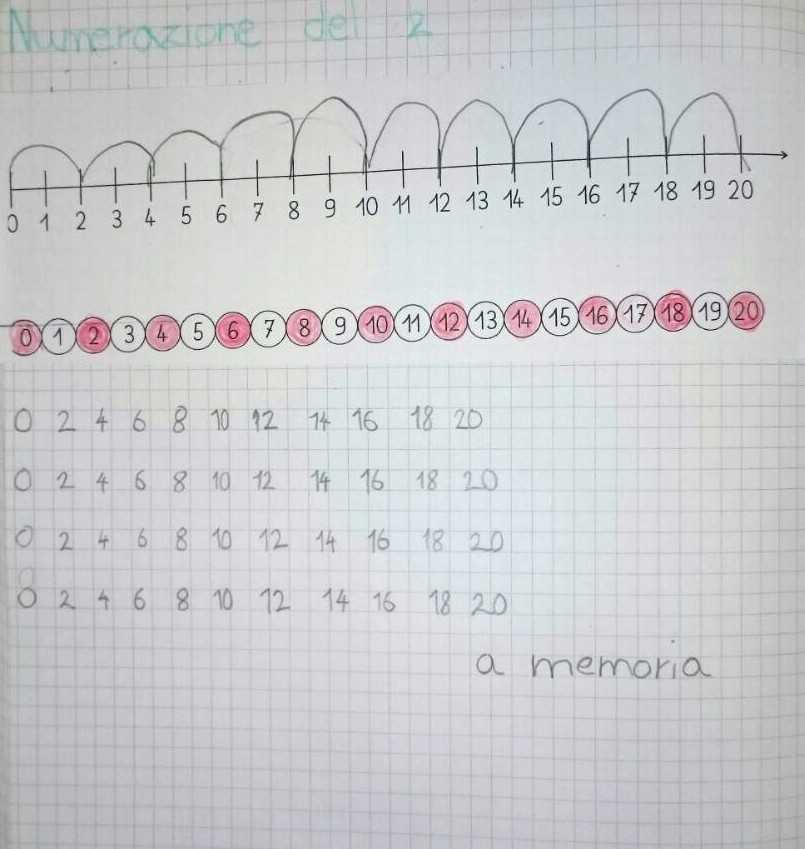 Numerazione del 2
0 1 2 3 4 5 6 7 8 9 10 11 12 13 14 15 16 17 18 19 20
0 1 2 3 4 5 6 7 8 9 10 11 12 13 14 15 16 17 18 19 20
0 2 4 6 8 10 12 14 16 18 20
0 2 4 6 8 10 12 14 16 18 20
0 2 4 6 8 10 12 14 16 18 20
0 2 4 6 8 10 12 14 16 18 20
a memoria